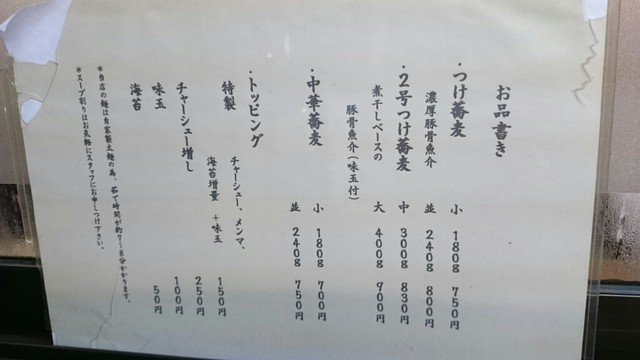 お品書き
・つけ蕎麦 小 180g 750円
濃厚豚骨魚介 並 240g 800円
・2号つけ蕎麦 中 300g 830円
煮干しベースの 大 400g 900円
豚骨魚介(味玉付)
・中華蕎麦 小 180g 700円
並 240g 750円
・トッピング
特製 チャーシュー、メンマ、
海苔増量 +味玉 150円
チャーシュー増し 250円
味玉 100円
海苔 50円
*当店の麺は自家製太麺の為、茹で時間が約7~8分かかります。
*スープ割りはお気軽にスタッフにお申しつけ下さい。